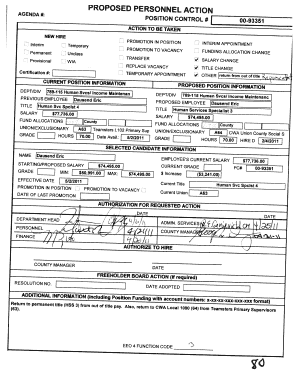 PROPOSED PERSONNEL ACTION
AGENDA #:
POSITION CONTROL # 00-93351
ACTION TO BE TAKEN
NEW HIRE
Interim
Temporary
Permanent
Unclass
Provisional
W/A
Certification #:
PROMOTION IN POSITION
PROMOTION TO VACANCY
TRANSFER
REPLACE VACANCY
TEMPORARY APPOINTMENT
INTERIM APPOINTMENT
FUNDING ALLOCATION CHANGE
✓ SALARY CHANGE
✓ TITLE CHANGE
✓ OTHER return from out of title
CURRENT POSITION INFORMATION
DEPT/DIV 789-115 Human Svcs/ Income Maintenanc
PREVIOUS EMPLOYEE Dausend Eric
TITLE Human Svc Spclst 4
SALARY $77,736.00
FUND ALLOCATIONS County
UNION/EXCLUSIONARY A63 Teamsters L102 Primary Sup
GRADE HOURS 70.00 Date Avail 5/2/2011
PROPOSED POSITION INFORMATION
DEPT/DIV 789-115 Human Svcs/ Income Maintenanc
PROPOSED EMPLOYEE Dausend Eric
TITLE Human Services Specialist 3
SALARY $74,495.00
FUND ALLOCATIONS County
UNION/EXCLUSIONARY A64 CWA Union County Social S
GRADE HOURS 70.00 HIRE D
SELECTED CANDIDATE INFORMATION
NAME Dausend Eric
STARTING/PROPOSED SALARY $74,495.00
GRADE MIN $50,991.00 MAX: $74,495.00
EFFECTIVE DATE 5/2/2011
PROMOTION IN POSITION PROMOTION TO VACANCY
DATE OF LAST PROMOTION
EMPLOYEE'S CURRENT SALARY $77,736.00
CURRENT GRADE PC# 00-93351
$ Increase ($3,241.00)
Current Title Human Svc Spclst 4
Current Union A63
AUTHORIZATION FOR REQUESTED ACTION
DATE
DATE
DEPARTMENT HEAD
ADMIN. SERVICES 4/25/11
PERSONNEL
COUNTY MANAGER
FINANCE
AUTHORIZE TO HIRE
COUNTY MANAGER
DATE
FREEHOLDER BOARD ACTION (if required)
RESOLUTION NO.
DATE ADOPTED
ADDITIONAL INFORMATION (including Position Funding with account numbers: x-xx-xx-xxx-xxx-xxx format)
Return to permanent title (HSS 3) from out of title pay. Also, return to CWA Local 1080 (64) from Teamsters Primary Supervisors
(63).
EEO 4 FUNCTION CODE
80